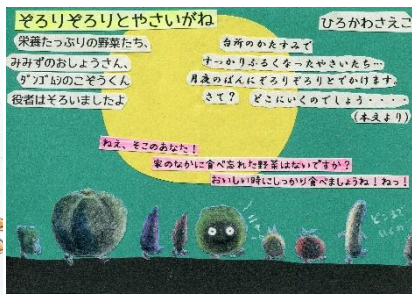 ぞろりぞろりとやさいがね
ひろかわさえこ
栄養たっぷりの野菜たち、
みみずのおしょうさん、
ダンゴムシのこぞうくん
役者はそろいましたよ
台所のかたすみで
すっかりふるくなったやさいたち…
月夜のばんにぞろりぞろりとでかけます。
さて? どこにいくのでしょう・・・・・
(本文より)
ねえ、そこのあなた!
家のなかに食べ忘れた野菜はないですか?
おいしい時にしっかり食べましょうね!ねっ!
どこまで
いくの